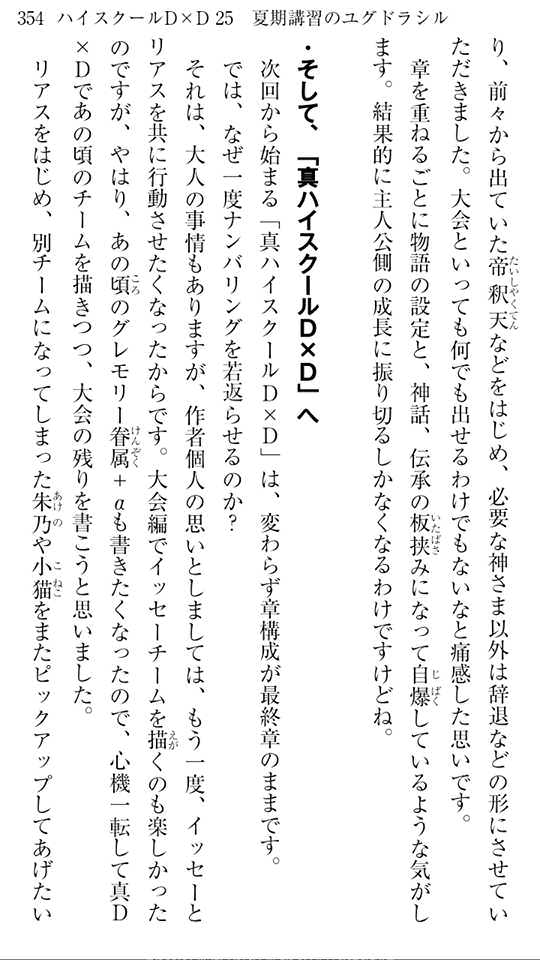 354 ハイスクールD×D 25 夏期講習のユグドラシル
り、前々から出ていた帝釈天などをはじめ、必要な神さま以外は辞退などの形にさせてい
ただきました。大会といっても何でも出せるわけでもないなと痛感した思いです。
章を重ねるごとに物語の設定と、神話、伝承の板挟みになって自爆しているような気がし
ます。結果的に主人公側の成長に振り切るしかなくなるわけですけどね。
・そして、「真ハイスクールD×D」へ
次回から始まる「真ハイスクールD×D」は、変わらず章構成が最終章のままです。
では、なぜ一度ナンバリングを若返らせるのか?
それは、大人の事情もありますが、作者個人の思いとしましては、もう一度、イッセーと
リアスを共に行動させたくなったからです。大会編でイッセーチームを描くのも楽しかった
のですが、やはり、あの頃のグレモリー眷属+αも書きたくなったので、心機一転して真D
×Dであの頃のチームを描きつつ、大会の残りを書こうと思いました。
リアスをはじめ、別チームになってしまった朱乃や小猫をまたピックアップしてあげたい